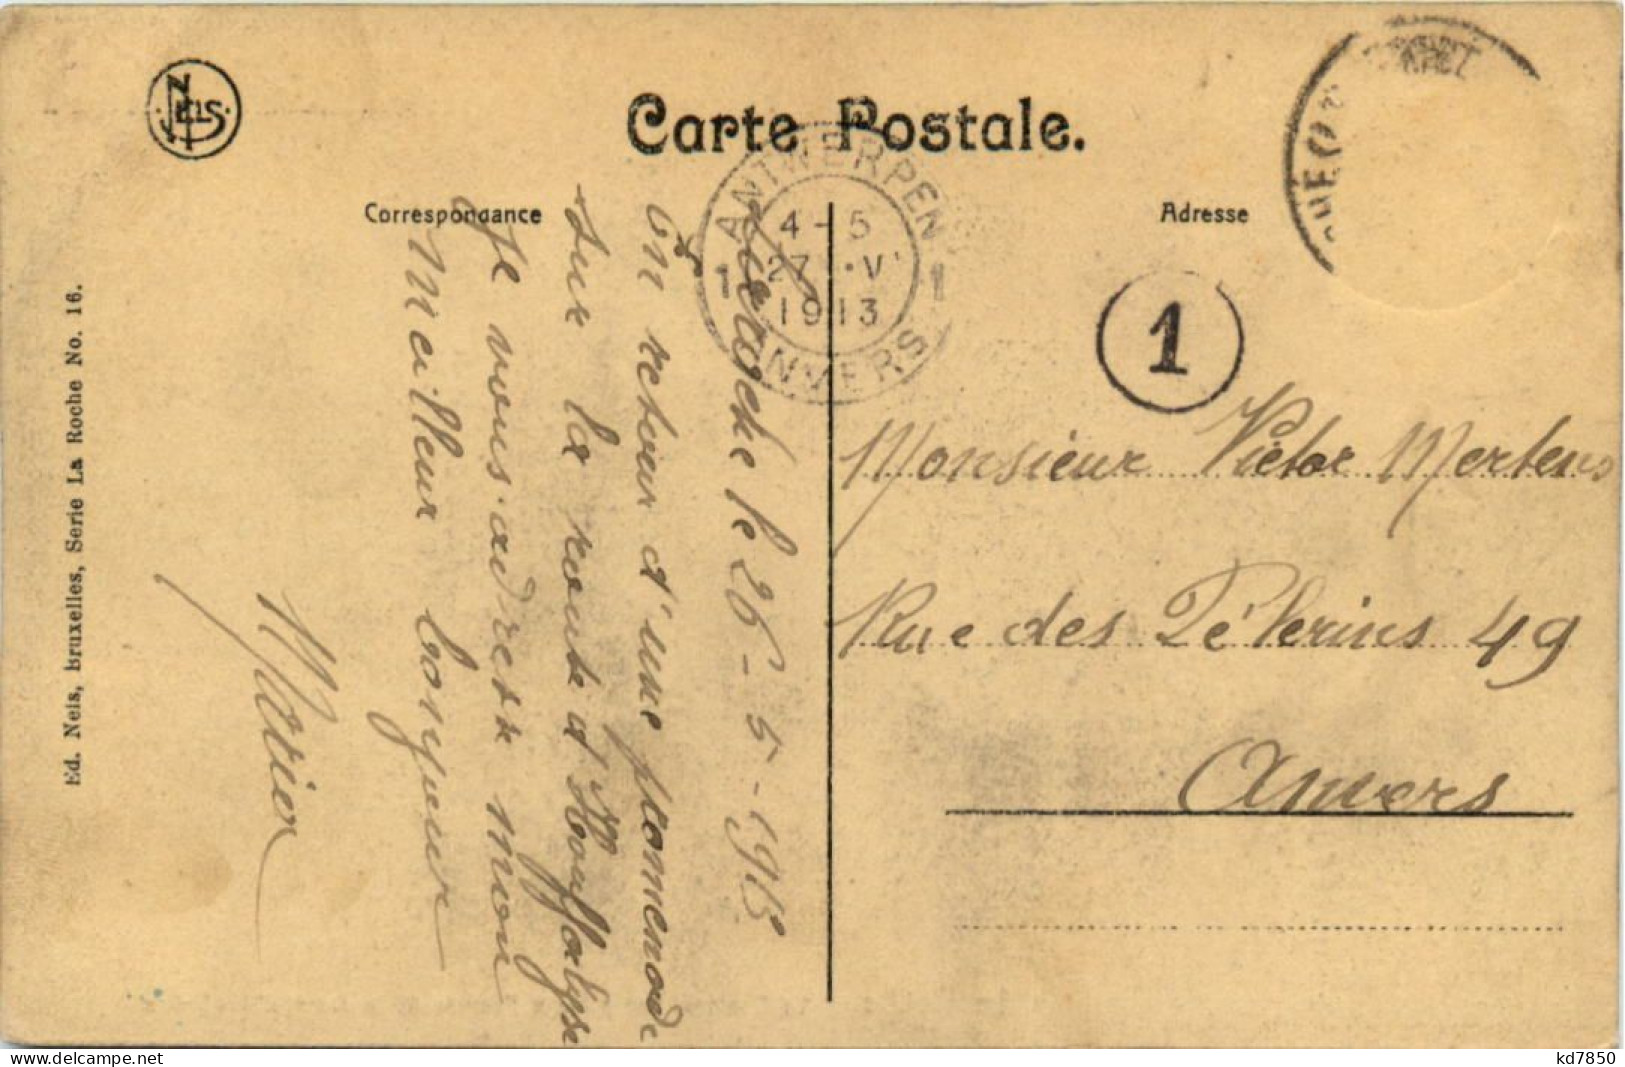 NELS
Carte Postale.
Correspondance
Adresse
ANTWERPEN
4-5
27 V
1913
1 1
ANVERS
1
Laroche le 26-5-1913
En retour d'une promenade
sur la route d'Houffalize
je vous adresse mon
meilleur bonjour
Monsieur Victor Mertens
Rue des Pélerins 49
Anvers
Ed. Nels, Bruxelles, Serie La Roche No. 16.
delcampe.net
kd7850